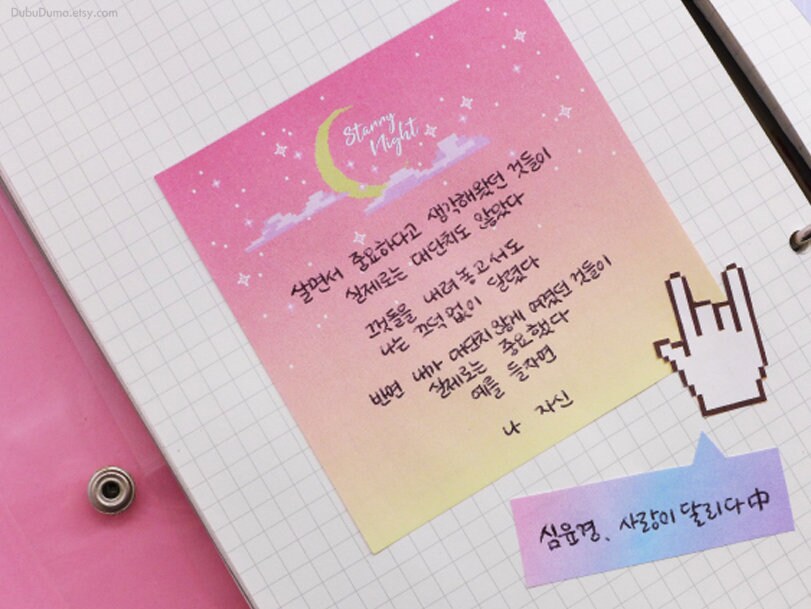 DubuDumo.etsy.com
Starry
Night
살면서 중요하다고 생각해왔던 것들이
실제로는 대단치도 않았다
그것들을 내려놓고서도
나는 끄덕없이 달렸다
반면 내가 대단치 않게 여겼던 것들이
실제로는 중요했다
예를 들자면
나 자신
심윤경, 사랑이 달리다 中